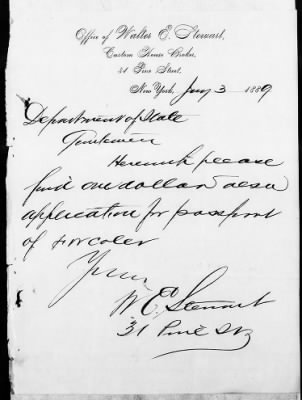 Office of Walter E. Stewart,
Custom House Broker,
31 Pine Street,
New York, Jany 3 1889
Department of State
Gentlemen
Herewith please
find one dollar also
application for passport
of
Yours
W E Stewart
31 Pine St